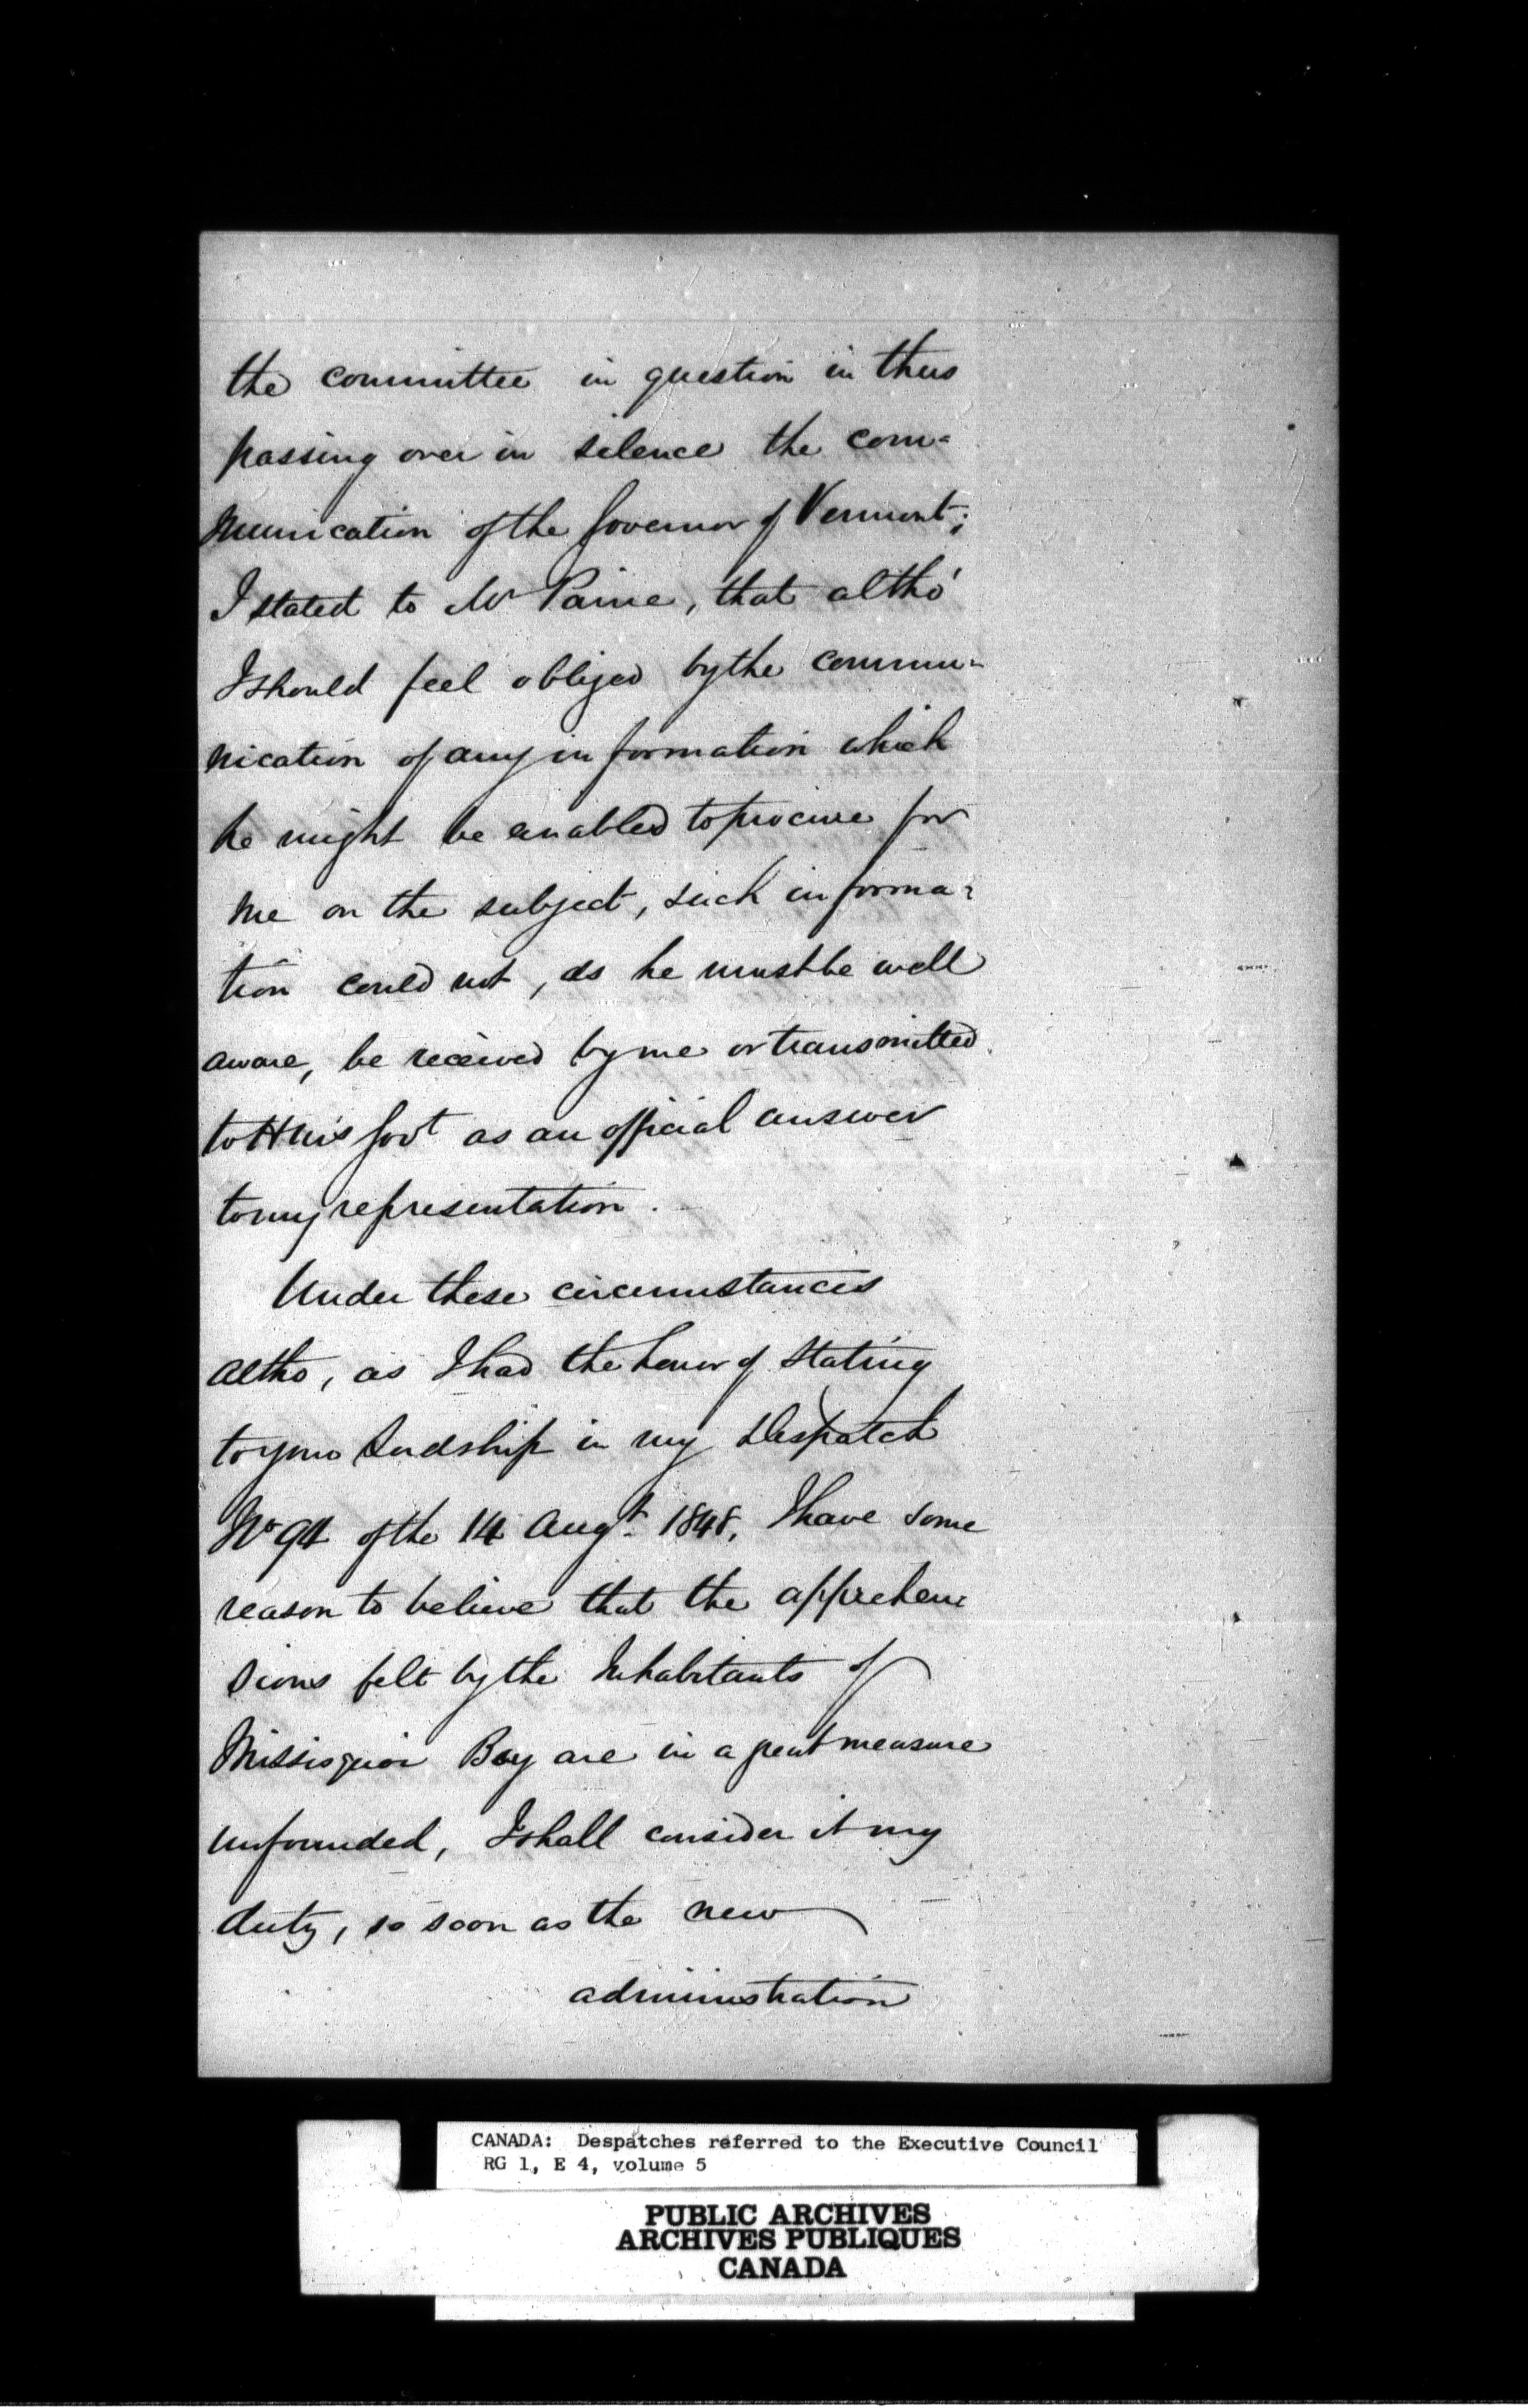 the committee in question in thus
passing over in silence the com=
munication of the Governor of Vermont;
I stated to Mr Paine, that altho'
I should feel obliged by the commu=
nication of any information which
he might be enabled to procure for
me on the subject, such informa=
tion could not, as he must be well
aware, be received by me or transmitted
to H M's Govt as an official answer
to my representation.
Under these circumstances
altho, as I had the honor of stating
to your Lordship in my Despatch
No 94 of the 14 Augt. 1848, I have some
reason to believe that the apprehen=
sions felt by the Inhabitants of
Missisquoi Bay are in a great measure
unfounded, I shall consider it my
duty, so soon as the new
administration
CANADA: Despatches referred to the Executive Council
RG 1, E 4, volume 5
PUBLIC ARCHIVES
ARCHIVES PUBLIQUES
CANADA